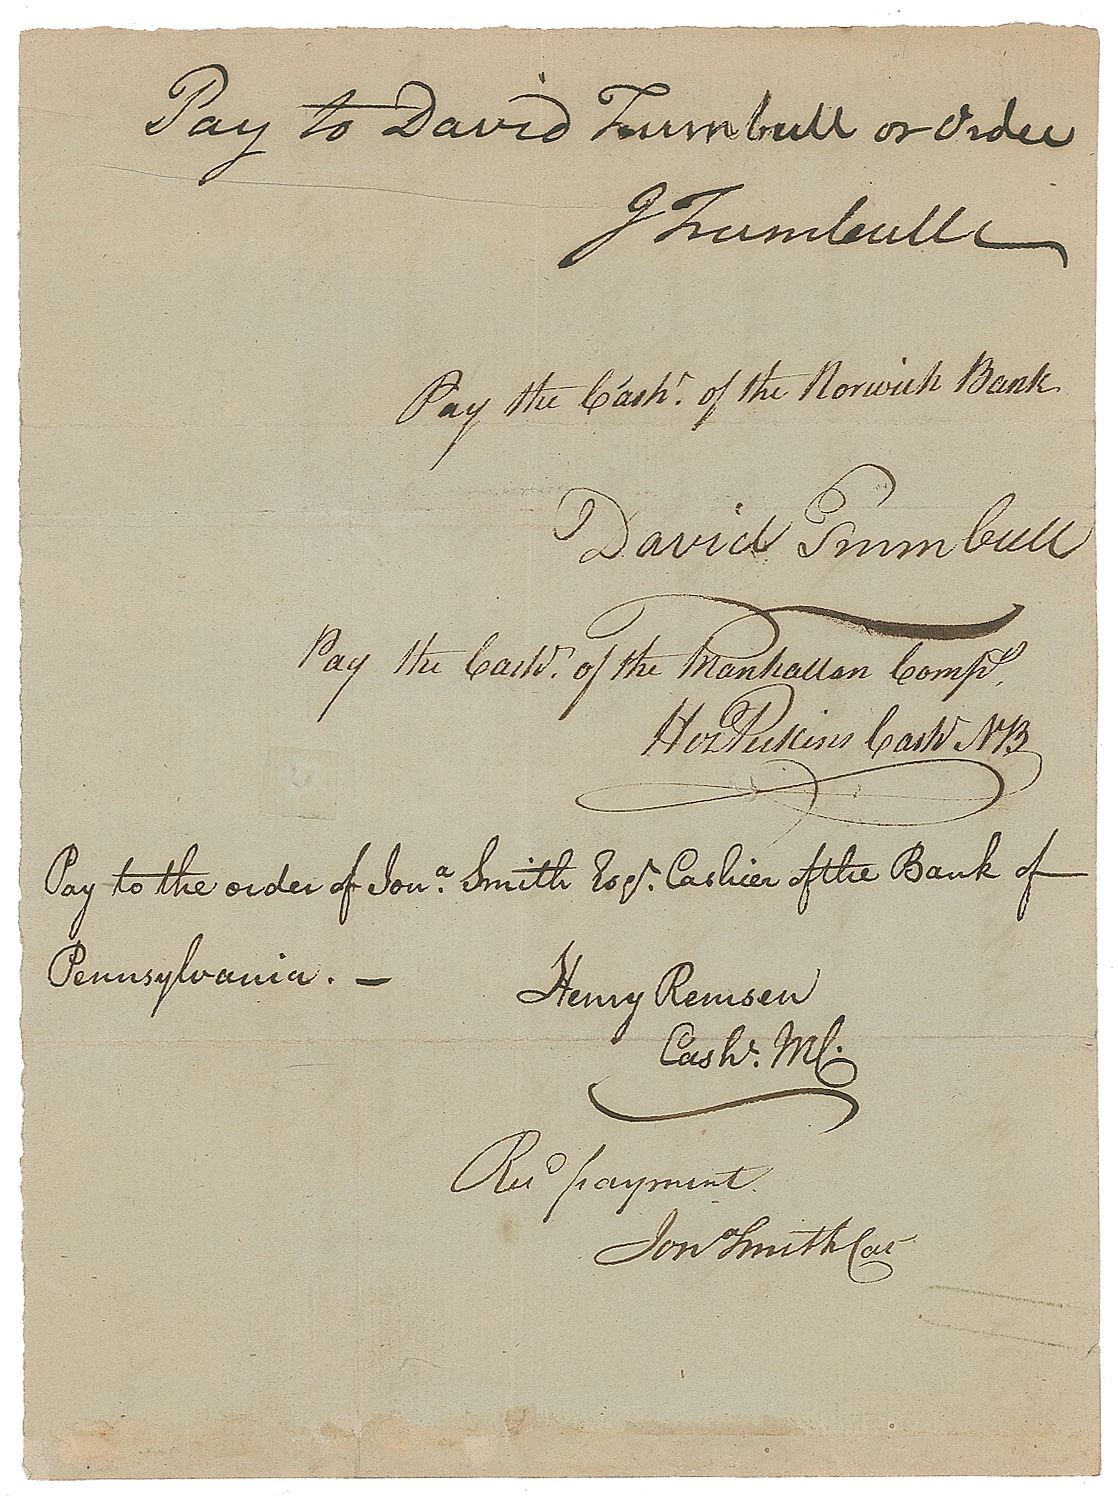 Pay to David Trumbull or order
J Trumbull
Pay the Cashr. of the Norwich Bank
David Trumbull
Pay the Cashr. of the Manhattan Compy.
Hez Perkins Cashr NB
Pay to the order of Jona. Smith Esqr. Cashier of the Bank of
Pennsylvania. —
Henry Remsen
Cashr. MC.
Recd payment.
Jona Smith Cas